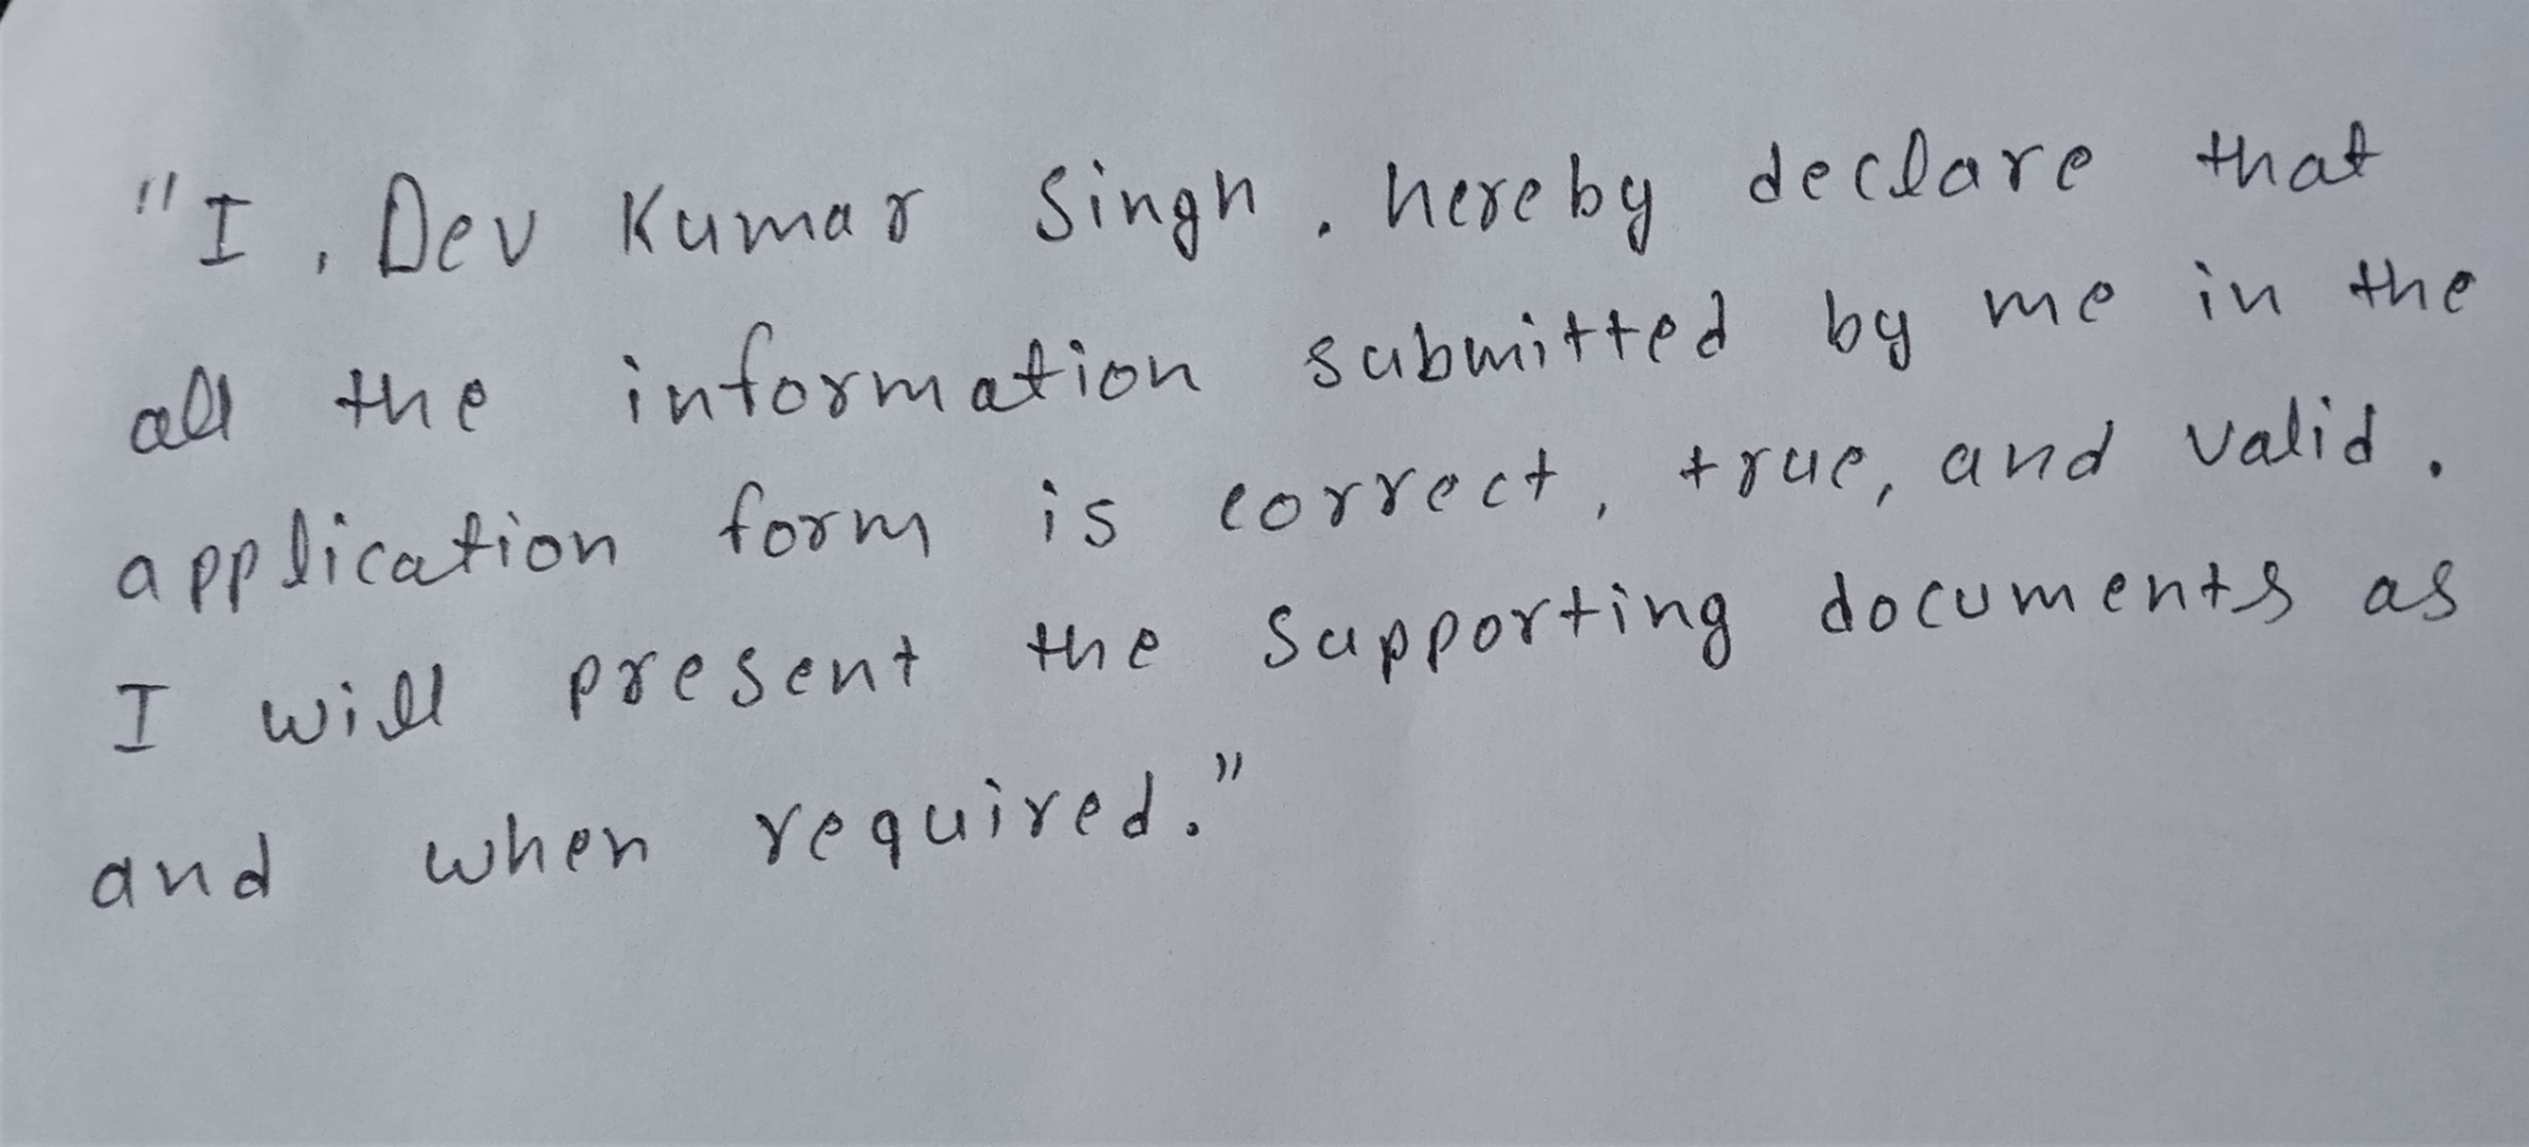 "I, Dev Kumar Singh, hereby declare that
all the information submitted by me in the
application form is correct, true, and valid.
I will present the supporting documents as
and when required."